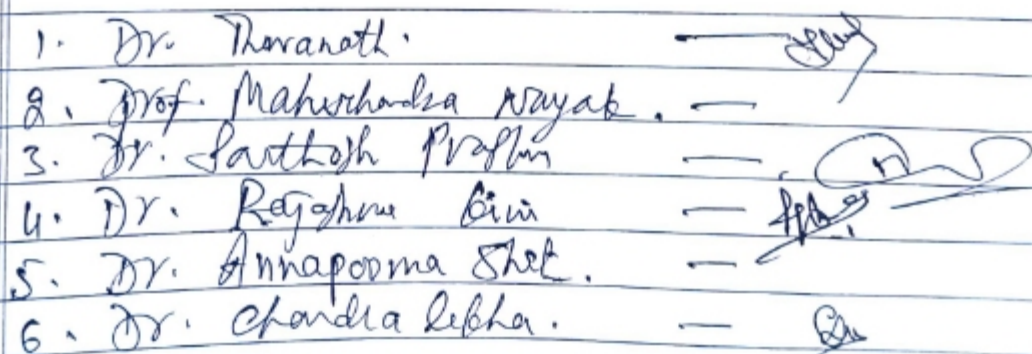 1. Dr. Tharanath. —
2. Prof. Maheschandra Nayak. —
3. Dr. Santhosh —
4. Dr. —
5. Dr. Annapoorna Shet. —
6. Dr. Chandra lekha. —